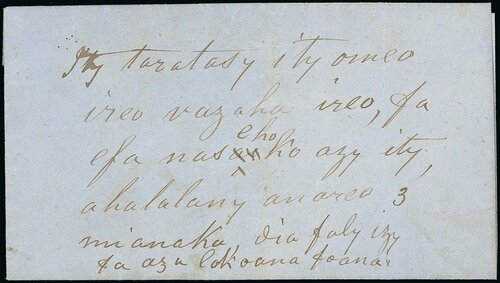 Ity taratasy ity omeo
ireo vazaha ireo, fa
efa nasehoko azy ity,
ahalalany anareo 3
mianaka, dia faly izy
fa aza